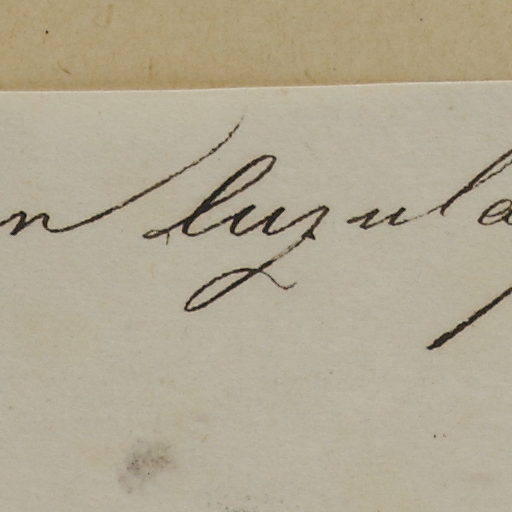 n luzula